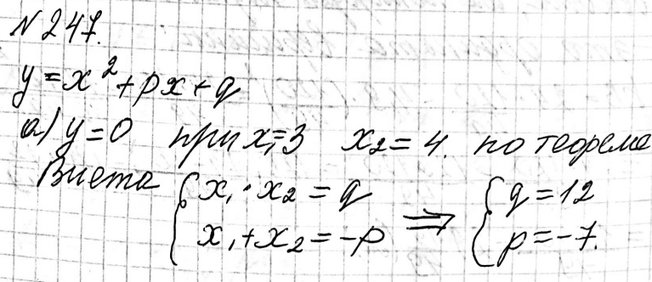 N 247.
y = x² + px + q
а) y = 0 при x₁ = 3 x₂ = 4. по теореме
Виета { x₁ · x₂ = q ⇒ { q = 12
x₁ + x₂ = -p p = -7.